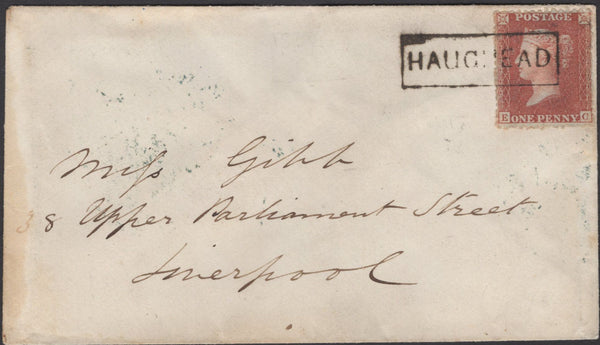 POSTAGE
HAUGHEAD
E ONE PENNY G
Miss Gibb
38 Upper Parliament Street
Liverpool